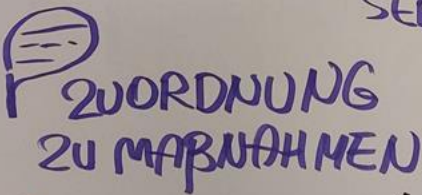 SE
ZUORDNUNG
ZU MAßNAHMEN